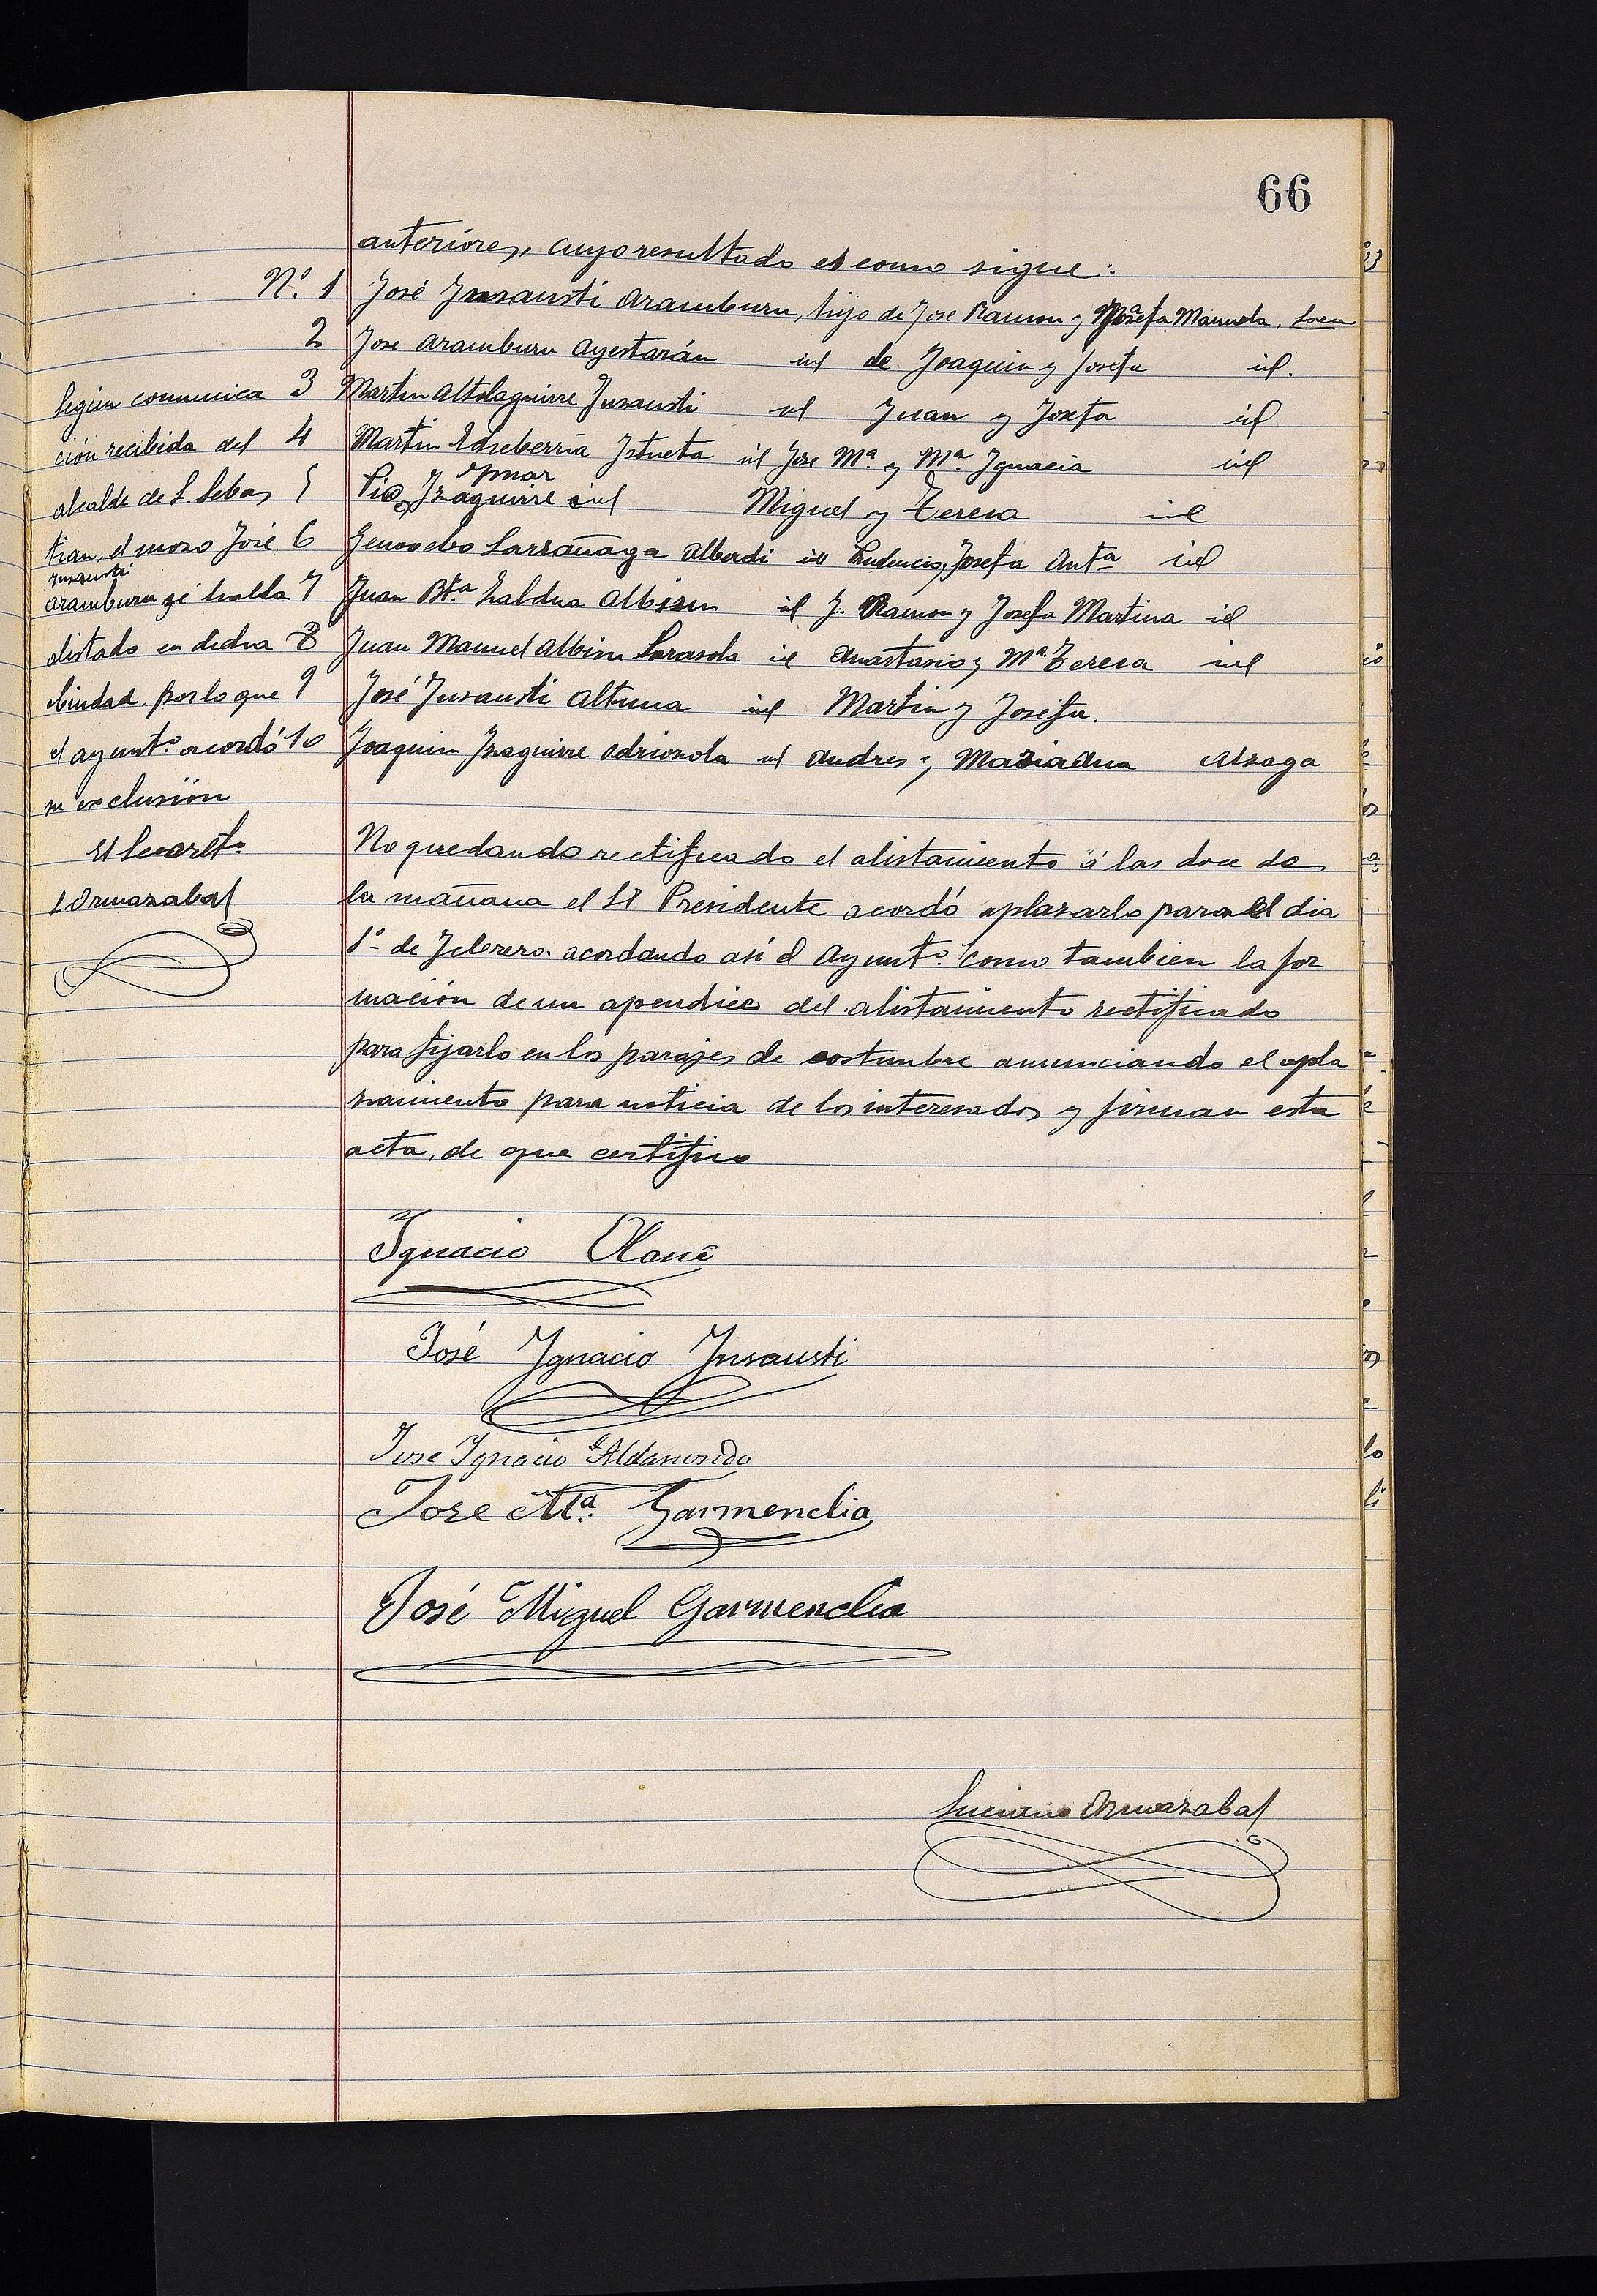 66
anteriores, cuyo resultado es como sigue:
Nº. 1 José Insausti Aramburu, hijo de Jose Ramon y Josefa Manuela,
2 Jose Aramburu Ayestarán id de Joaquin y Josefa id.
3 Martin Altolaguirre Insausti id Juan y Josefa id
4 Martin Echeberria Istueta id Jose Mª. y Mª. Ignacia id
5 Pio Izaguirre id Miguel y Teresa id
6 Genovebo Larrañaga Alberdi id Prudencio y Josefa Antª id
7 Juan Bta. Zaldua Albisu id J. Ramon y Josefa Martina id
8 Juan Manuel Albisu Sarasola id Anastasio y Mª. Teresa id
9 José Insausti Altuna id Martin y Josefa.
10 Joaquin Izaguirre Odriozola id Andres y Maria Ana Alzaga
Según comunica
ción recibida del
alcalde de S. Sebas
tian, el mozo José
Insausti
Aramburu se halla
alistado en dicha
Ciudad, por lo que
el ayuntº. acordó
su exclusión
El Secretº
L Ormazabal
No quedando rectificado el alistamiento á las doce de
la mañana el Sr Presidente acordó aplazarlo para el dia
1º de Febrero. acordando así el Ayuntº. como tambien la for
mación de un apendice del alistamiento rectificado
para fijarlo en los parajes de costumbre anunciando el apla
zamiento para noticia de los interesados y firman esta
acta, de que certifico
Ignacio Olano
José Ignacio Insausti
Jose Ignacio Aldanondo
Jose Mª. Garmendia
José Miguel Garmendia
Luciano Ormazabal